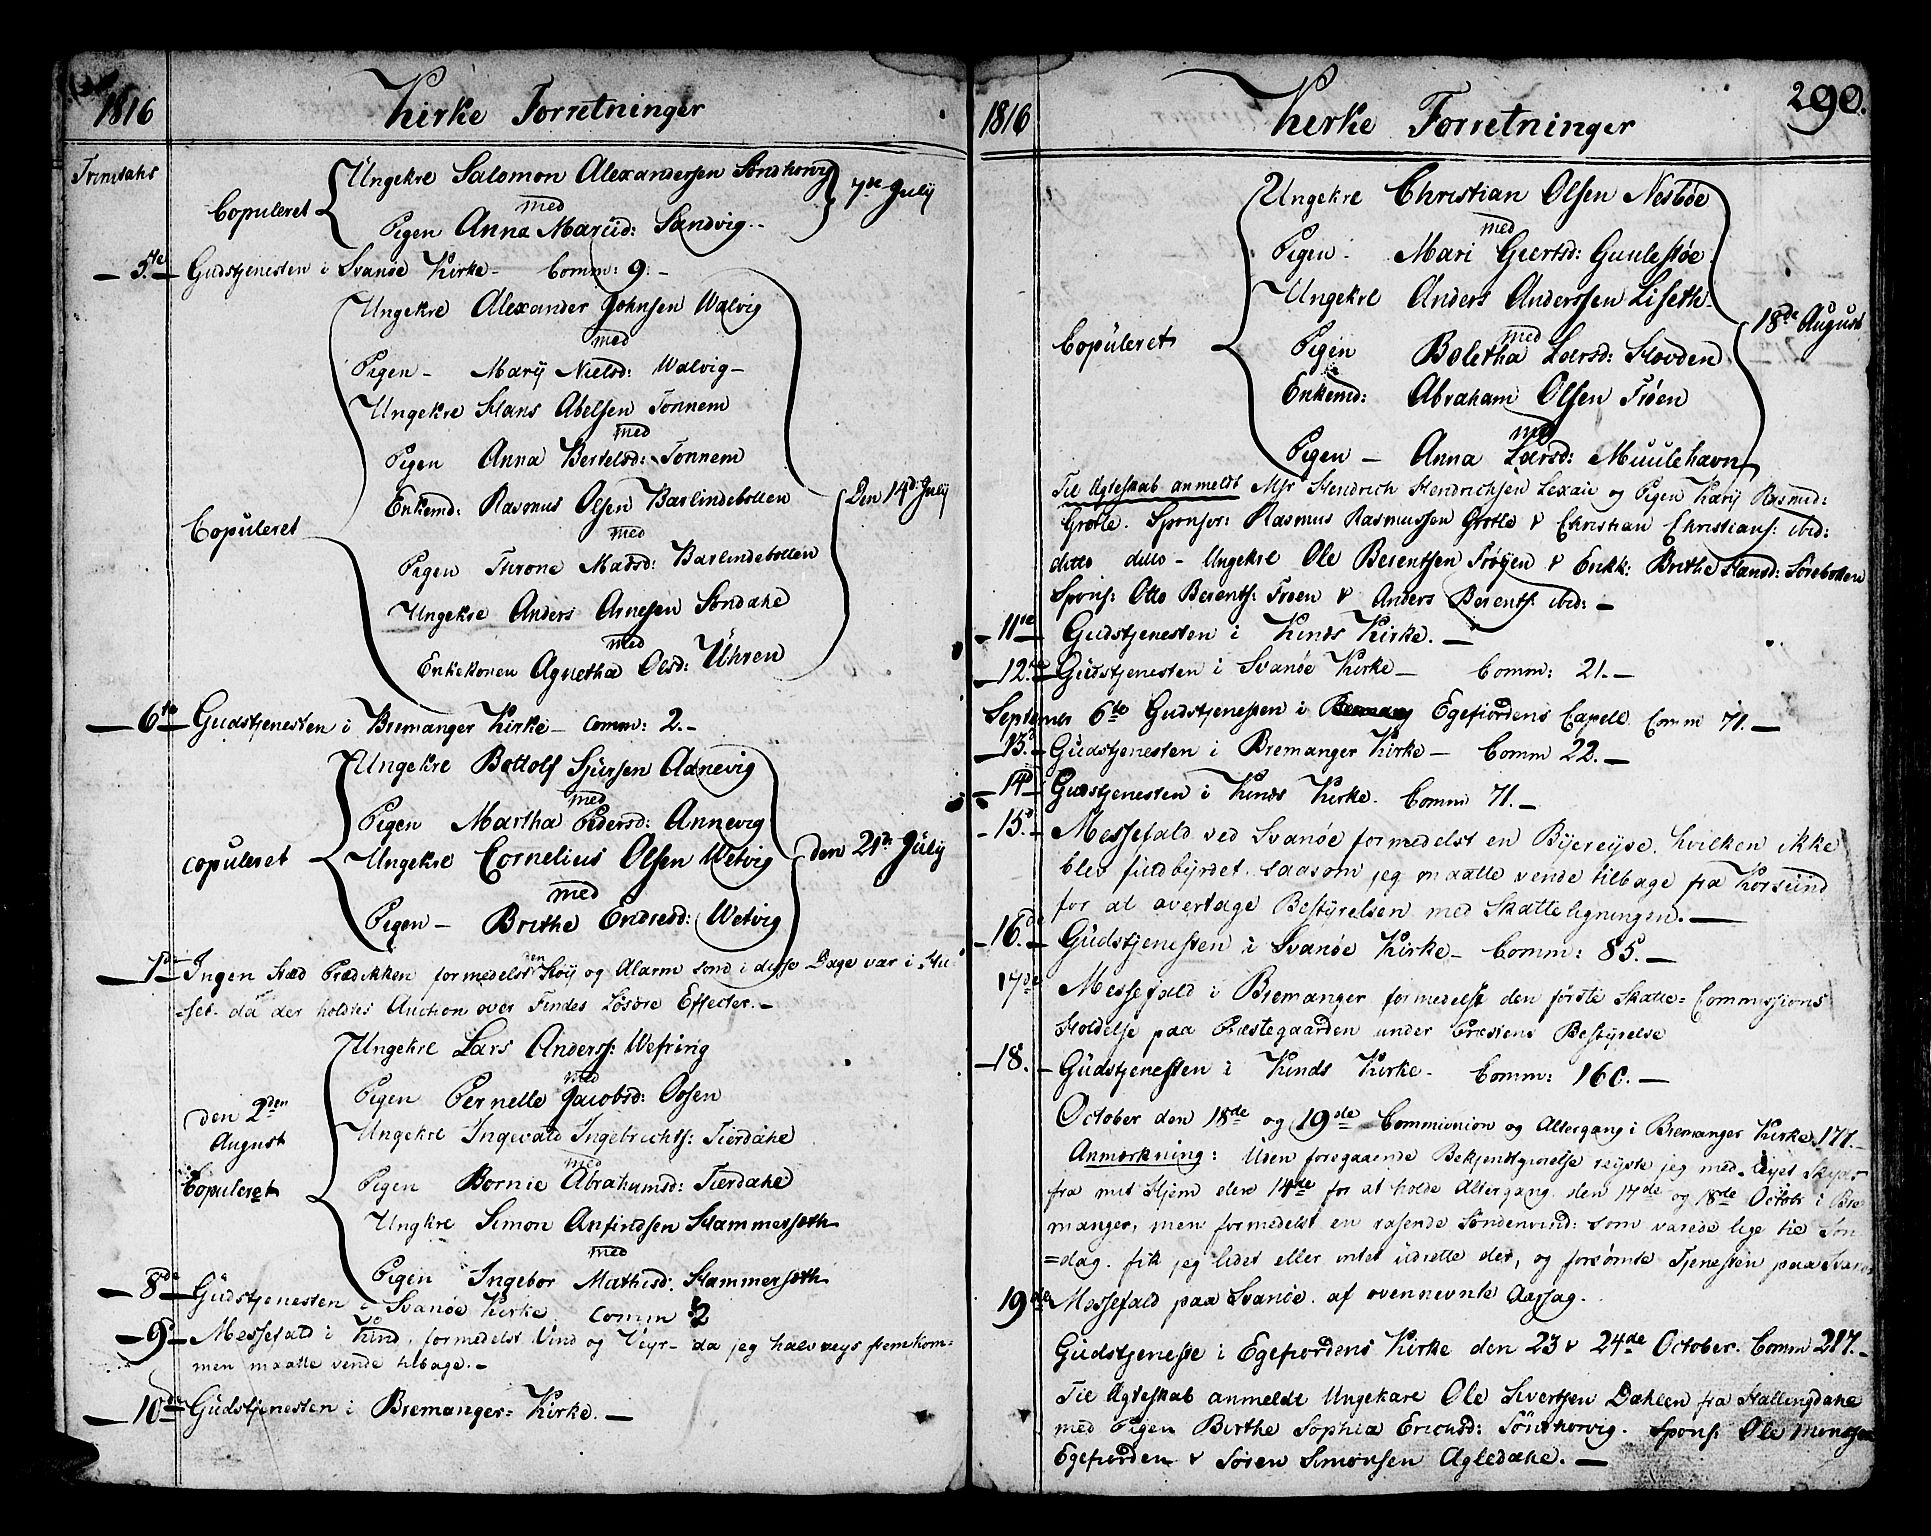 1816 Kirke Forretninger
Trinitatis
Copuleret
Ungekrl Salomon Alexandersen Søndhorvig
med
Pigen Anna Mariid: Sandvig
7de Julÿ
5te Gudstjenesten i Svanøe Kirke - Comm: 9.-
Ungekrl Alexander Johnsen Walvig
med
Pigen - Marÿ Nielsd: Walvig -
Ungekrl Hans Abelsen Tonnem
med
Pigen Anna Bertelsd: Tonnem
Copuleret
Enkemd: Rasmus Olsen Barlindebotten
med
Den 14d: Julÿ
Pigen Throne Madsd: Barlindebotten
Ungekrl Anders Arnesen Søndahe
med
Enkekonen Agnetha Olsd: Uhren
6te Gudstjenesten i Bremanger Kirke - Comm: 2.-
Ungekrl Bottolf Sjursen Adnevig
med
Pigen Martha Pedersd: Annevig
copuleret
Ungekrl Cornelius Olsen Wetvig
med
den 21d: Julÿ
Pigen - Brithe Endresd: Wetvig
7de Ingen Stæd Prædikken formedelst den Støÿ og Alarm som i disse Dage var i Hu-
=set. da der holdtes Auction over Findes Løsøre Effecter.-
Ungekrl Lars Anderss: Wefring
med
Pigen Pernelle Jacobsd: Osen
den 2den
August
Copuleret
Ungekrl Ingevald Ingebrichts: Tierdahe
med
Pigen Bornie Abrahamsd: Tierdahe
Ungkre Simon Anfindsen Hammersæth
med
Pigen Ingebor Mathisd: Hammersæth
8de Gudstjenesten i Svanøe Kirke Comm 2
9d Messefald i Kind, formedelst Vind og Veyr - da jeg halvveys fremkom-
men maatte vende tilbage.-
10de Gudstjenesten i Bremanger= Kirke.-
1816 Kirke Forretninger 290.
Ungekre Christian Olsen Nesbøe
med
Pigen - Mari Geertsd: Guulestøe
Ungekrl Anders Anderssen Liseth
med
Copuleret
18de August
Pigen Boletha Larsd: Hovden
Enkemd: Abraham Olsen Frøen
med
Pigen - Anna Larsd: Muulehavn
Til Ægteskab anmeldt Msr Hendrich Hendrichsen Lexau og Pigen Karÿ Rasmd:
Grotle. Sponsor: Rasmus Rasmussen Grotle & Christian Christians: ibid:
ditto ditto - Ungekrl Ole Berentsen Frøÿen & Enkk: Brithe Hansd: Sørebotten
Spons: Otto Berents: Frøen & Anders Berents: ibid: -
11te Gudstjenesten i Kinds Kirke. -
12te Gudstjenesten i Svanøe Kirke - Comm: 21.-
September 6te Gudstjenesten i Egefiordens Capell Comm 71.-
13. Gudstjenesten i Bremanger Kirke - Comm 22.-
14d Gudstjenesten i Kinds Kirke. Comm 71.-
15d Messefald ved Svanøe formedelst en Bÿereÿse, hvilken ikke
blev fuldbÿrdet. saasom jeg maatte vende tilbage fra Korsund
for at overtage Bestÿrelsen med Skatteligningen. -
16.de Gudstjenesten i Svanøe Kirke - Comm: 85. -
17de Messefald i Bremanger formedelst den første Skatte= Commissions
Holdelse paa Præstegaarden under Præstens Bestÿrelse
18. Gudstjenesten i Kinds Kirke - Comm: 160. -
October den 18de og 19de Communion og Altergang i Bremanger Kirke 177.-
Anmærkning: Uden foregaaende Bekjendtgiørelse reÿste jeg med Leÿet Skÿds
fra mit Hjem den 14de for at holde Altergang den 17de og 18de Octobr i Bre
manger, men formedelst en rasende Søndenvind: som varede lige til Søn
=dag. fik jeg lidet eller intet udrette der, og forsømte Tjenesten paa Svanøe
19de Messefald paa Svanøe. af ovennevnte Aarsag.
Gudstjeneste i Egefiordens Kirke den 23 & 24de October. Comm 217.-
Til Ægteskab anmeldt Ungekare Ole Sivertsen Dahlen fra Hallingdahe
med Pigen Birthe Sophia Ericksd: Sönskorvig. Spons: Ole Monssen
Egefiorden & Søren Simonsen Agledahe. -